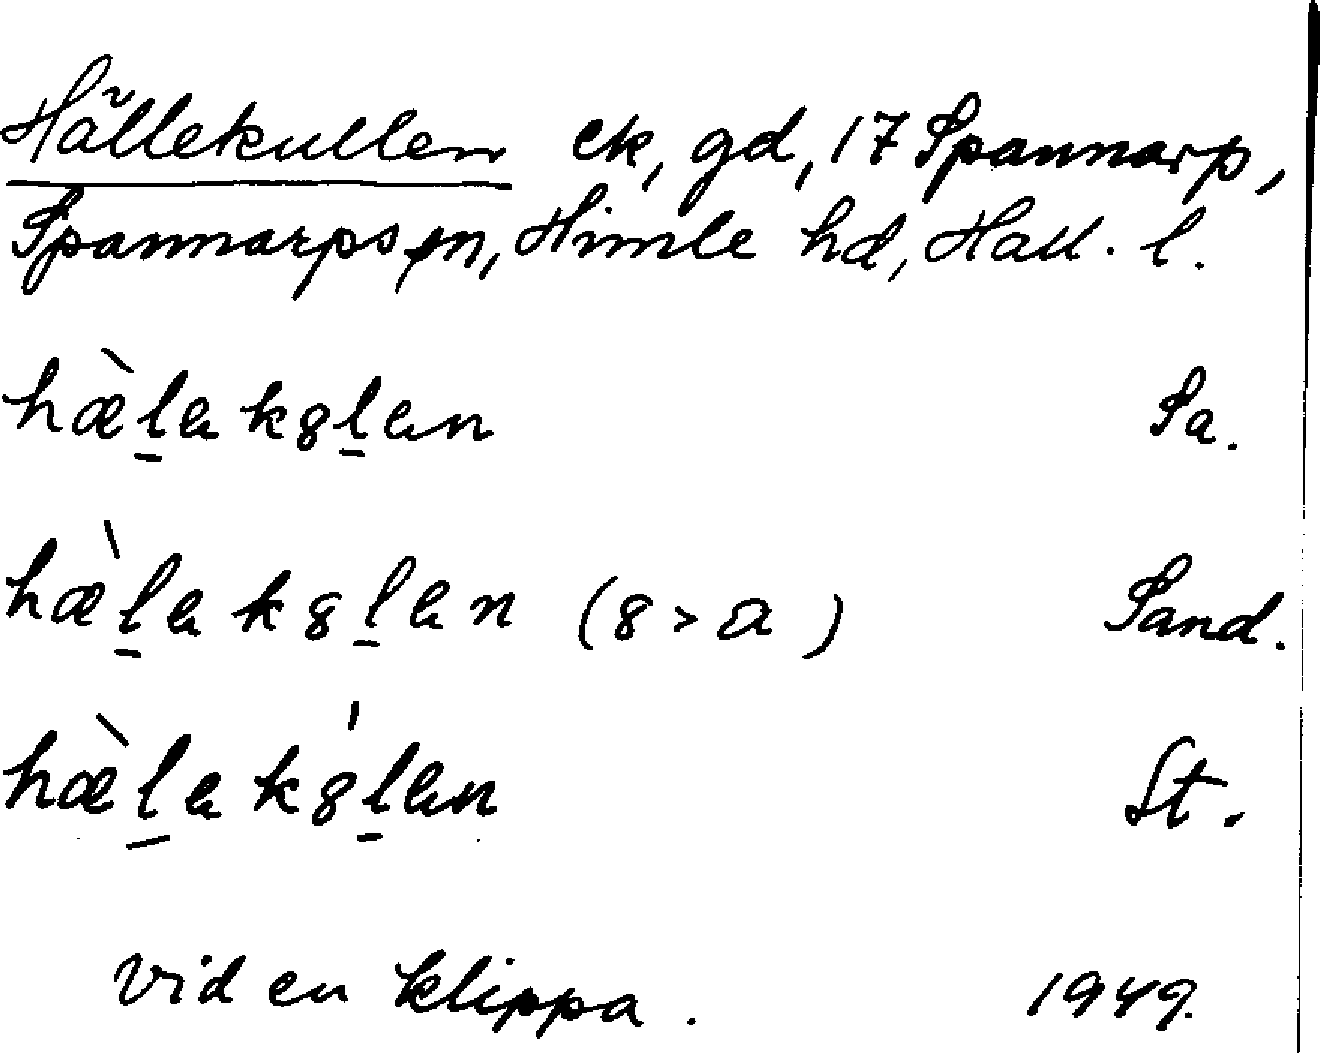 Hällekullen ck, gd, 17 Spannarp,
Spannarps sn, Himle hd, Hall. l.
hæ̀l̠a k8l̠an Sa.
hæ̀l̠a k8l̠an (8 > a) Sand.
hæ̀l̠a k8́l̠an St.
vid en klippa. 1949.